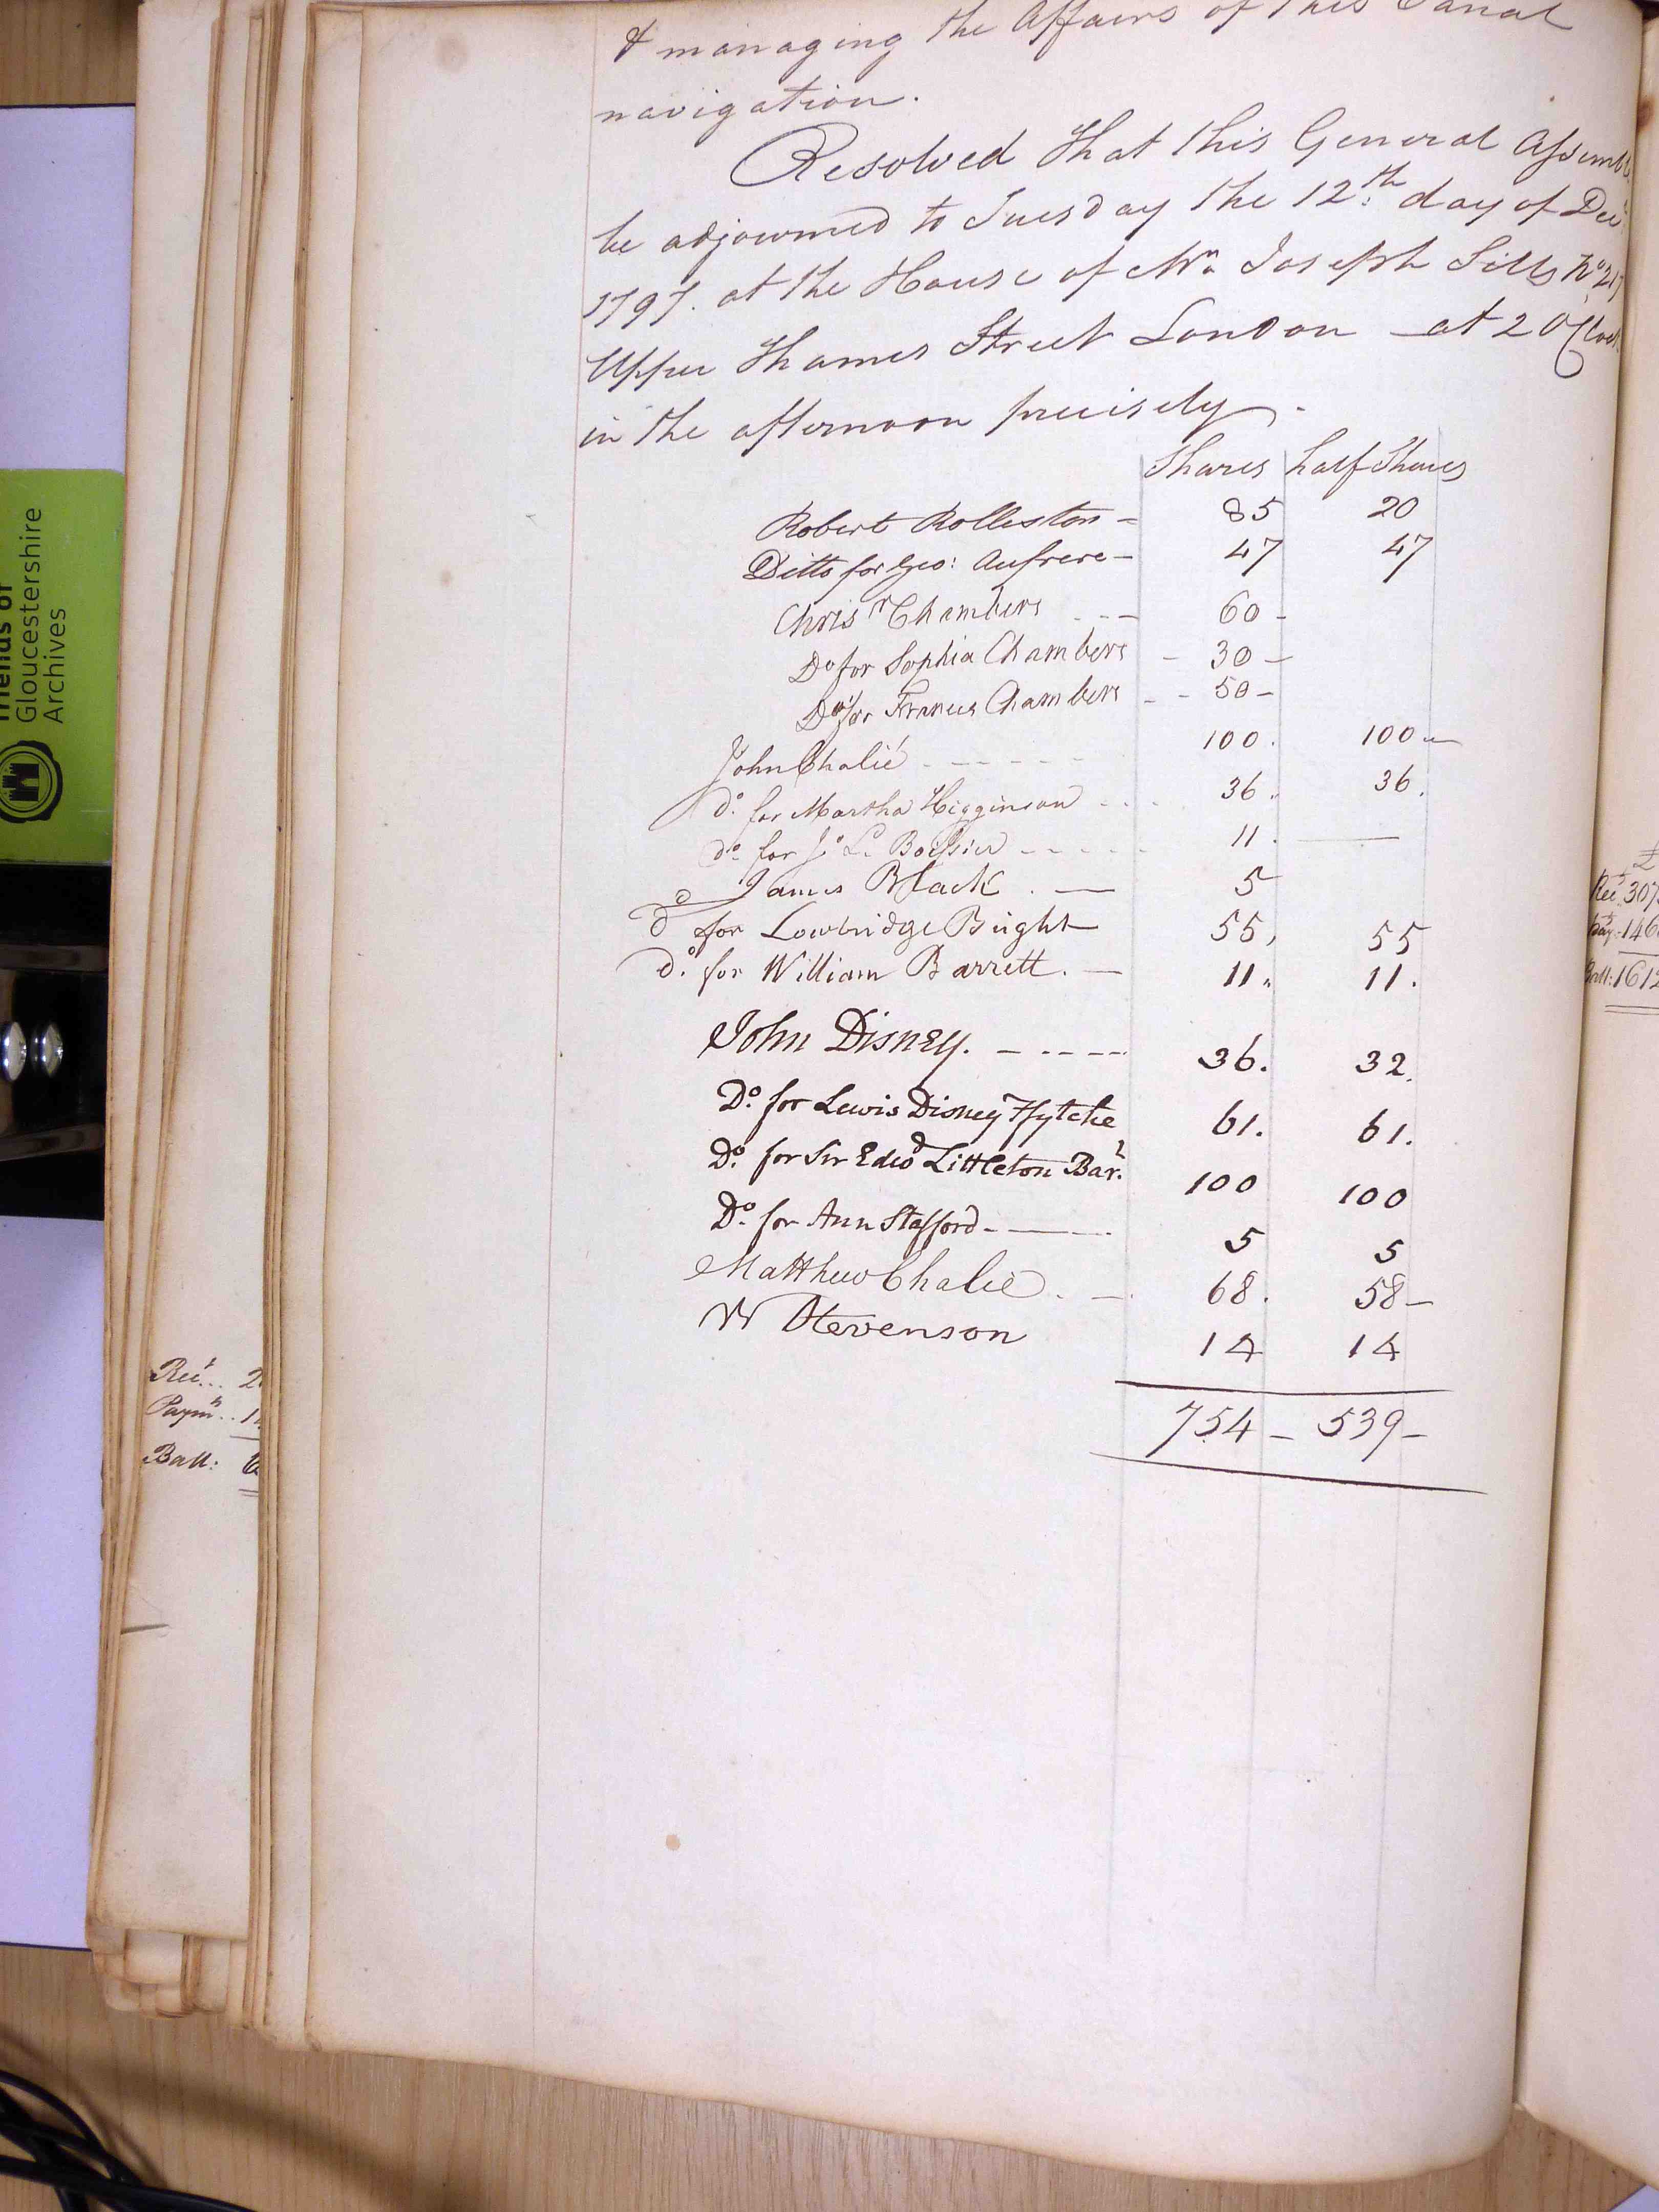 & managing the Affairs of this Canal
navigation.
Resolved That this General Assembl
be adjourned to Tuesday the 12th day of Decr
1797. at the House of Mr Joseph Sills No 217
Upper Thames Street London at 2 OClock
in the afternoon precisely.
Shares half Shares
Robert Rolleston - 85 20
Ditto for Geo: Aufrere - 47 47
Chrisr Chambers - - - 60 -
Do for Sophia Chambers - 30 -
Do for Frances Chambers - - 50 -
John Chalié - - - - - - 100. 100 -
do. for Martha Higginson - - - 36. 36.
do. for Jo L. Boissier - - - - - 11. —
James Black . — 5
do for Lowbridge Bright 55, 55
do. for William Barrett. — 11. 11.
John Disney. - - - - - 36. 32.
Do. for Lewis Disney Ffytche 61. 61.
Do. for Sir Edwd Littleton Bart. 100 100
Do. for Ann Stafford - — 5 5
Matthew Chalié . — 68. 58 -
W Stevenson 14 14
754 - 539 -
Friends of
Gloucestershire
Archives
Rect... 2
Paymts.. 1
Ball:
£
Rects 307
Payts 146
Ball: 1612